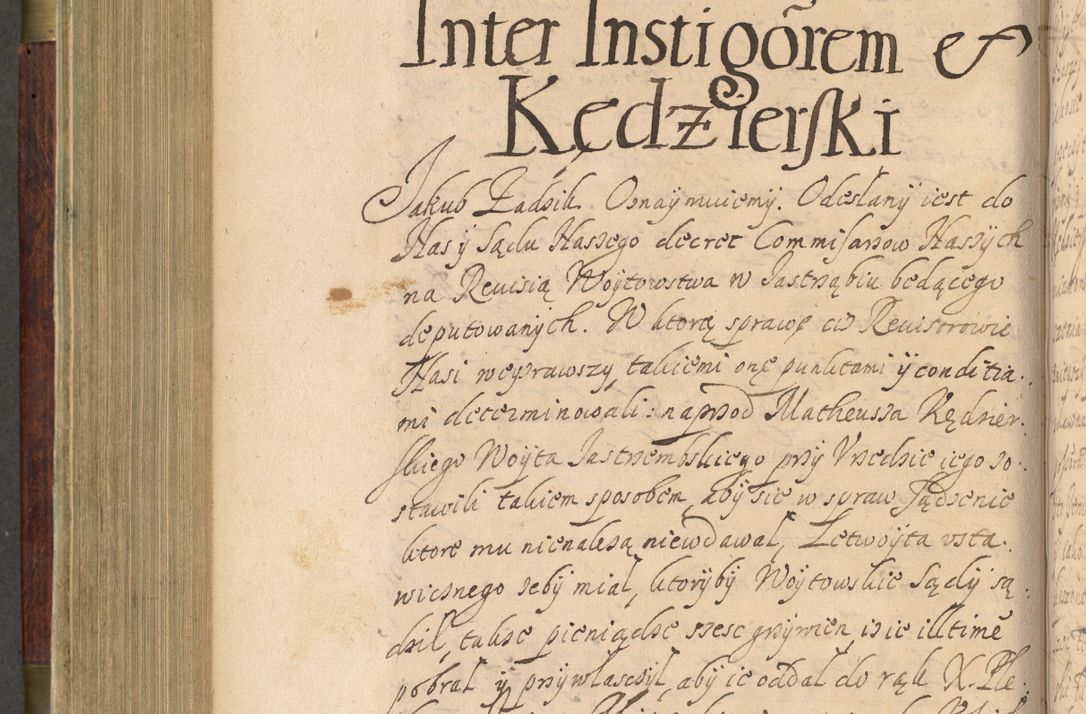 Inter Instigõrem et
Kędzierski
Jakub Zadzik. Oznaÿmuiemÿ. Odesłanÿ iest do
Nas ÿ Sądu Naszego decret Commisarzow Naszÿch
na Reuisią Woÿtowstwa w Jastrząbiu bedącego
deputowanÿch. W ktorę sprawę ciż Reuisorowie
Nasi weÿzrawszÿ takiemi onę punktami ÿ conditia
mi determinowali: naprzod Matheussa Kędzier
skiego Woÿta Jastrzembskiego przÿ Vrzedzie iego zo
stawili takiem sposobem, abÿ sie w spraw Sądzenie
ktore mu nienależą niewdawał, Letwoÿta vsta
wicznego zebÿ miał, ktorÿbÿ Woÿtowskie Sądÿ są
dził, takze pieniądze szesc grzÿwien iz ie illtime
pobrał ÿ przÿwłaszczÿł, abÿ ie oddal do rąk X. Ple